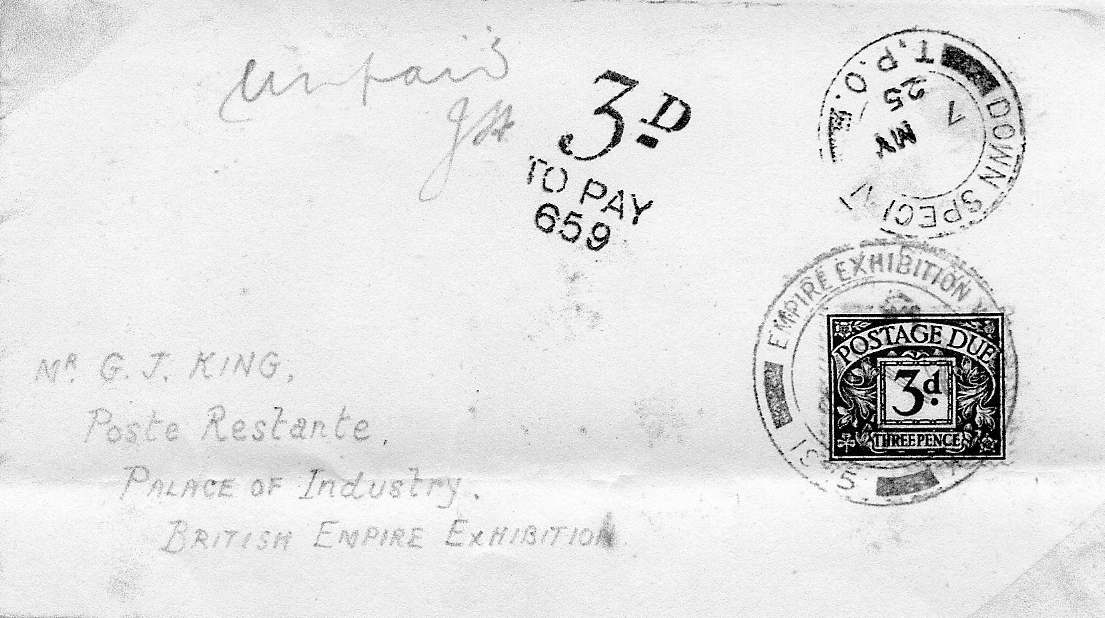 unpaid
3D
TO PAY
659
DOWN SPECI
T.P.O.
7
MY
25
EMPIRE EXHIBITION
POSTAGE DUE
3d.
THREE PENCE
Mr. G. J. KING,
Poste Restante,
PALACE OF Industry.
BRITISH EMPIRE EXHIBITION